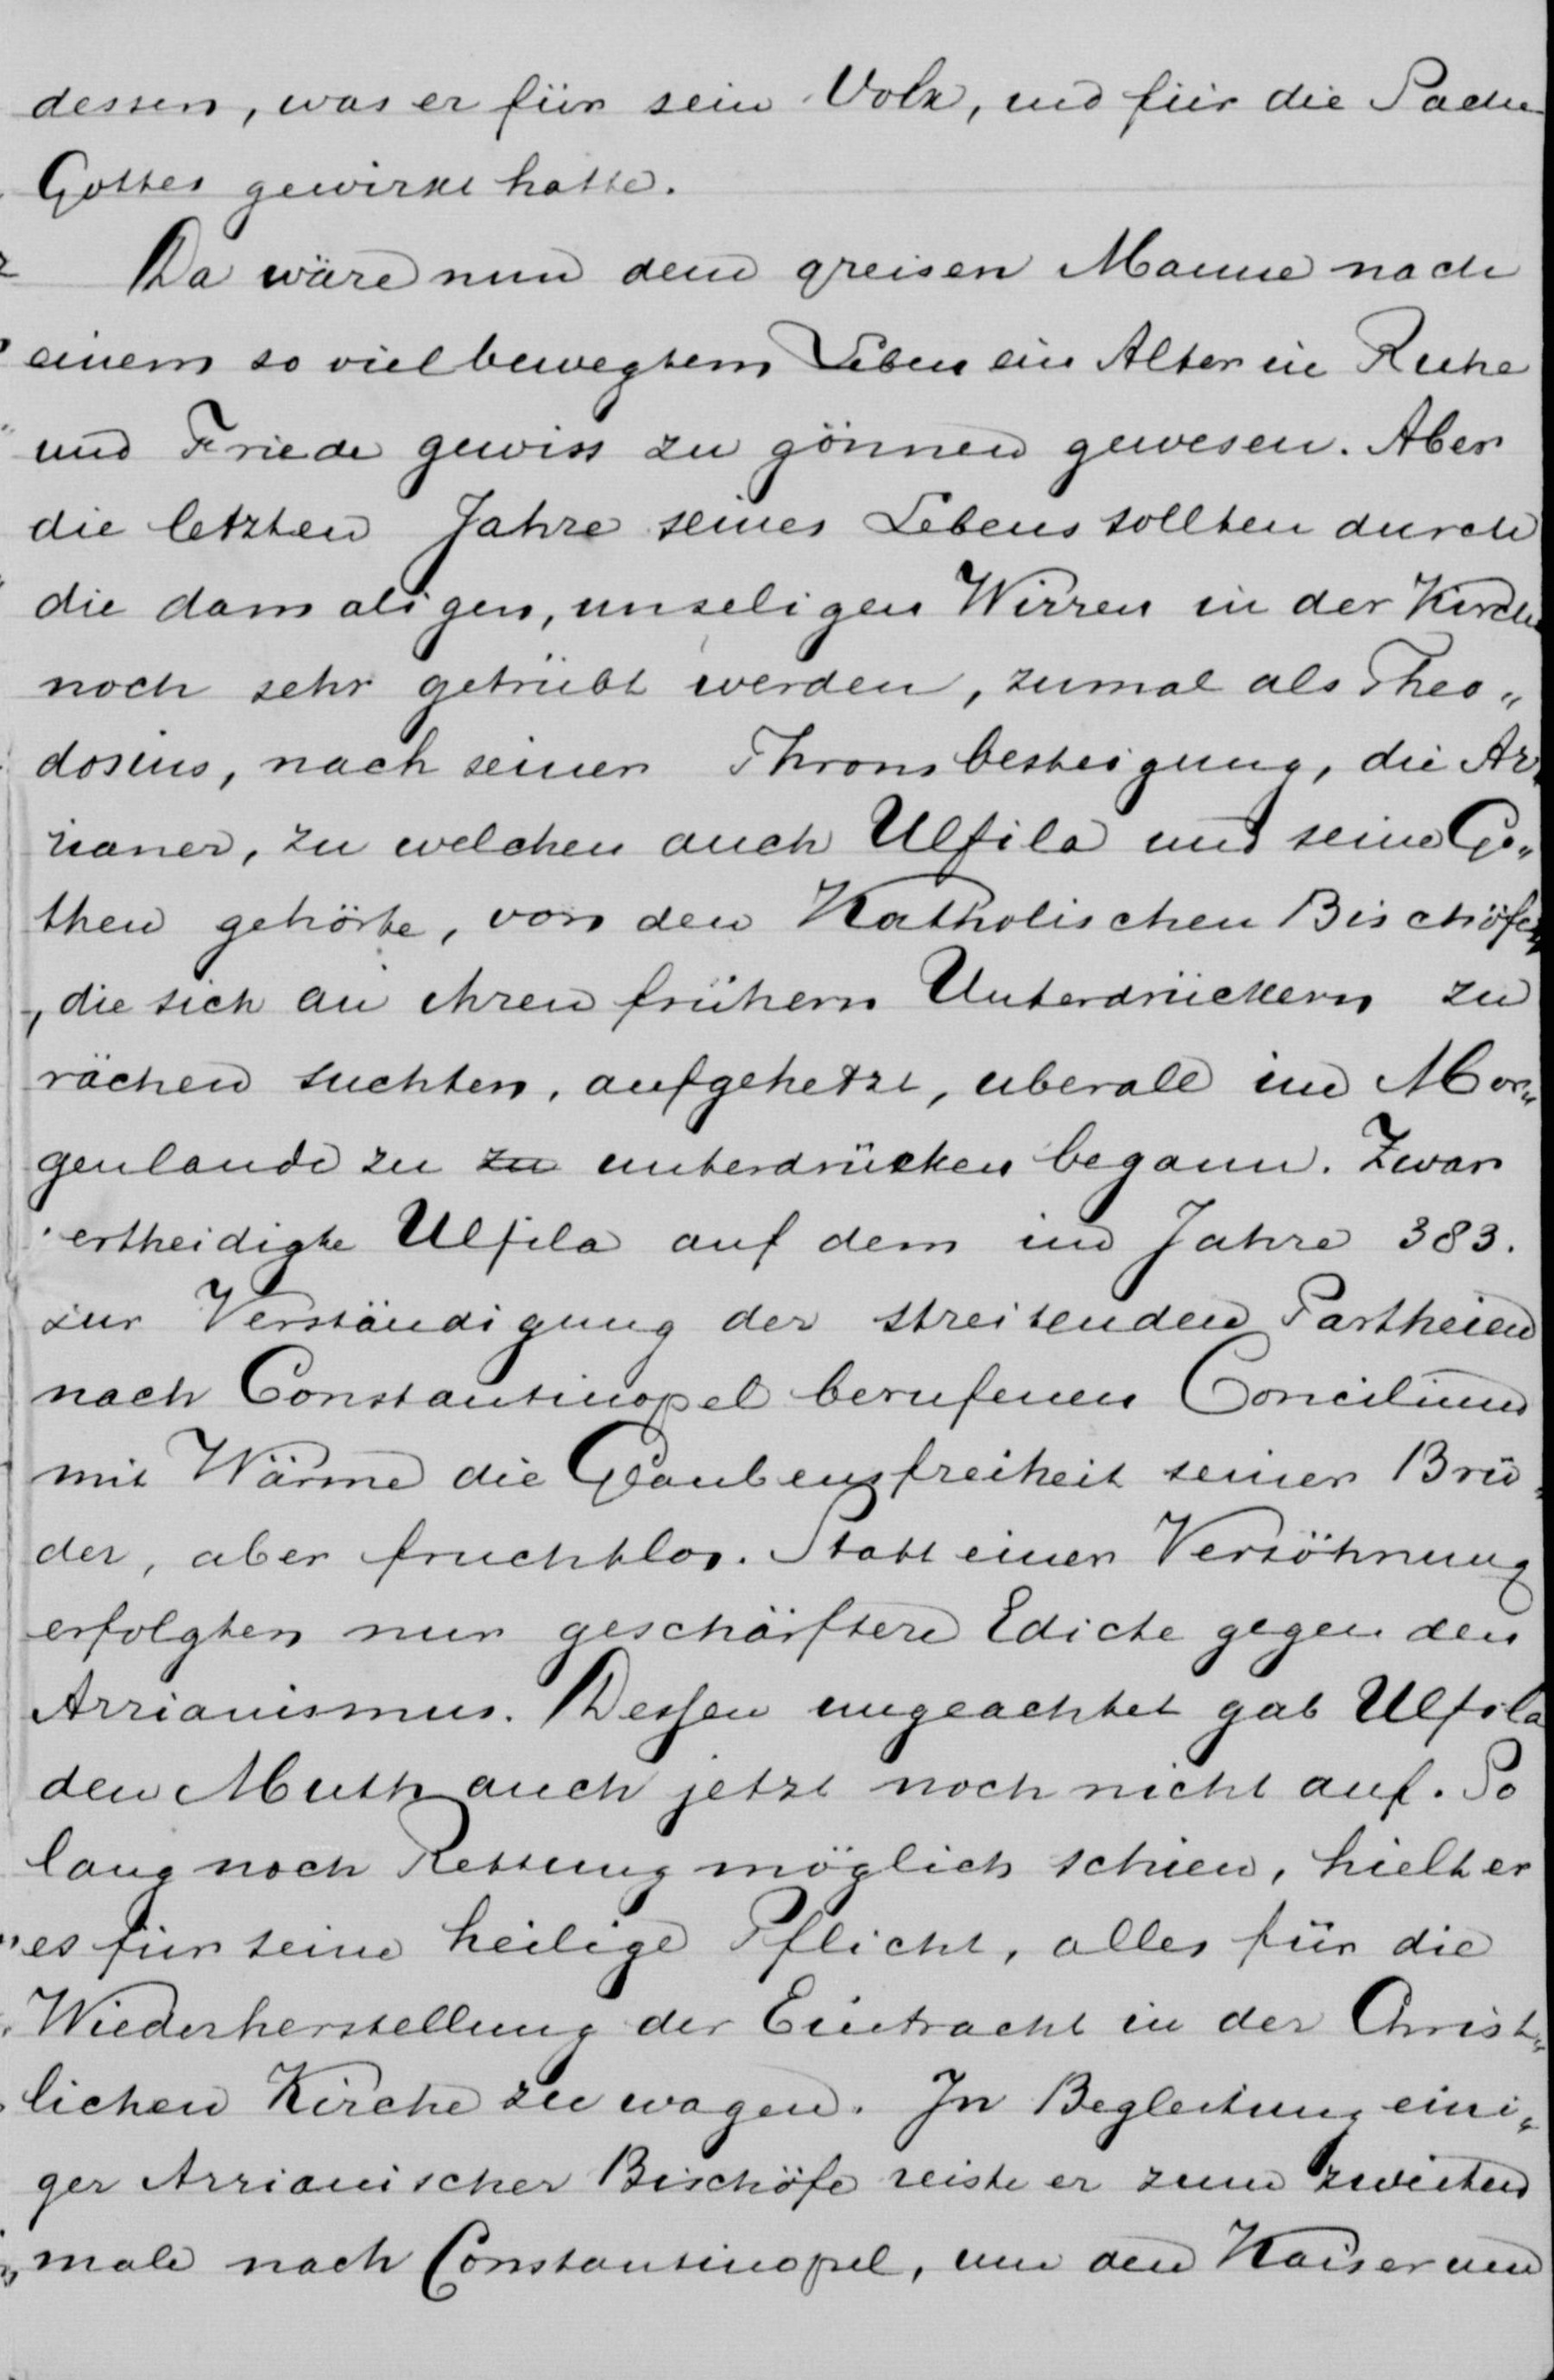 dessen, was er für sein Volk, und für die Sache
Gottes gewirkt hatte.
Da wäre nun dem greisen Manne nach
einem so viel bewegtem Leben ein Alter in Ruhe
und Friede gewiss zu gönnen gewesen. Aber
die letzten Jahre seines Lebens sollten durch
die damaligen, unseligen Wirren in der Kirche
noch sehr getrübt werden, zumal als Theo„
dosius, nach seiner Thronsbesteigung, die Ar„
rianer, zu welchen auch Ulfila und seine Go„
then gehörte, von den Katholischen Bischöfen
, die sich an ihren frühern Unterdrückern zu
rächen suchten, aufgehetzt, uberall im Mor„
genlande zu zu unterdrücken begann. Zwar
ertheidigte Ulfila auf dem im Jahre 383.
zur Verständigung der streitenden Partheien
nach Constantinopel berufenen Concilium
mit Wärme die Glaubensfreiheit seiner Brü„
der, aber fruchtlos. Statt einer Versöhnung
erfolgten nur geschärftere Edicte gegen den
Arrianismus. Dessen ungeachtet gab Ulfila
den Muth auch jetzt noch nicht auf. So
lang noch Rettung möglich schien, hielt er
es für seine heilige Pflicht, alles für die
Wiederherstellung der Eintracht in der Christ„
lichen Kirche zu wagen. In Begleitung eini„
ger Arrianischer Bischöfe reiste er zum zweiten
male nach Constantinopel, um den Kaiser um